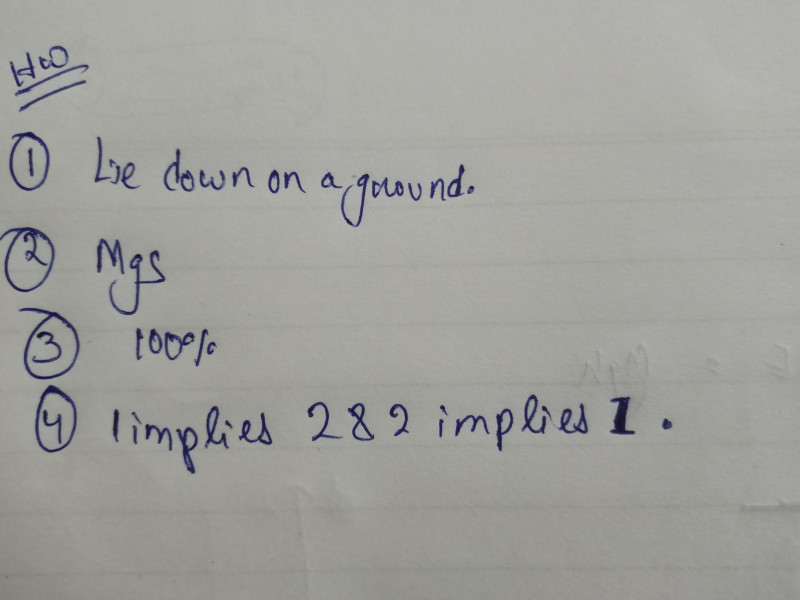 HW
① Lie down on a ground.
② Mgs
③ 100%
④ 1 implies 2 & 2 implies 1.